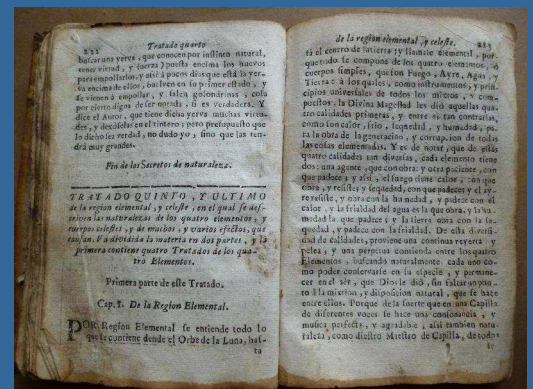 222
Tratado quarto
buscar una yerva, que conocen por instinto natural,
tener virtud, y fuerza) puesta encima los huevos
para empollarlos, y assi à pocos dias que està la yer-
va encima de ellos, buelven en su primer estado, y
se vienen à empollar, y salen golondrinas; cosa
por cierto digna de ser notada, si es verdadera. Y
dice el Autor, que tiene dicha yerva muchas virtu-
des, y dexòselas en el tintero; pero presupuesto que
lo dicho sea verdad, no dudo yo, sino que las ten-
drà muy grandes.
Fin de los Secretos de naturaleza.
TRATADO QUINTO, Y ULTIMO
de la region elemental, y celeste, en el qual se des-
criven las naturalezas de los quatro elementos, y
cuerpos celestes, y de muchos, y varios efectos, que
causan. Va dividida la materia en dos partes, y la
primera contiene quatro Tratados de los qua-
tro Elementos.
Primera parte de este Tratado.
Cap. I. De la Region Elemental.
POR Region Elemental se entiende todo lo
que se contiene desde el Orbe de la Luna, has-
ta
de la region elemental, y celeste.
223
ta el centro de la tierra; y llamase elemental, por-
que todo se compone de los quatro elementos, ò
cuerpos simples, que son Fuego, Ayre, Agua, y
Tierra: à los quales, como instrumentos, y prin-
cipios universales de todos los mixtos, y com-
puestos, la Divina Magestad les diò aquellas qua-
tro calidades primeras, y entre sì tan contrarias,
como son calor, frio, sequedad, y humedad, pa-
ra la obra de la generacion, y corrupcion de todas
las cosas elementadas. Y es de notar, que de estas
quatro calidades tan diversas, cada elemento tiene
dos: una agente, que con obra; y otra paciente, con
que padece; y assi, el fuego tiene calor, con que
obra, y resiste; y sequedad, con que padece: y el ay-
re resiste, y obra con la humedad, y padece con el
calor, y la frialdad del agua es la que obra, y la hu-
medad la que padece; y la tierra obra con la se-
quedad, y padece con la frialdad. De esta diversi-
dad de calidades, proviene una continua reyerta, y
pelea, y una perpetua contienda entre los quatro
Elementos, buscando naturalmente cada uno co-
mo poder conservarse en su especie, y permane-
cer en el sèr, que Dios le diò, sin faltar un pun-
to la mixtion, y disposicion natural, que se hace
entre ellos. Porque de la suerte que en una Capilla
de diferentes voces se hace una consonancia, y
musica perfecta, y agradable, assi tambien natu-
raleza, como diestro Maestro de Capilla, de todos